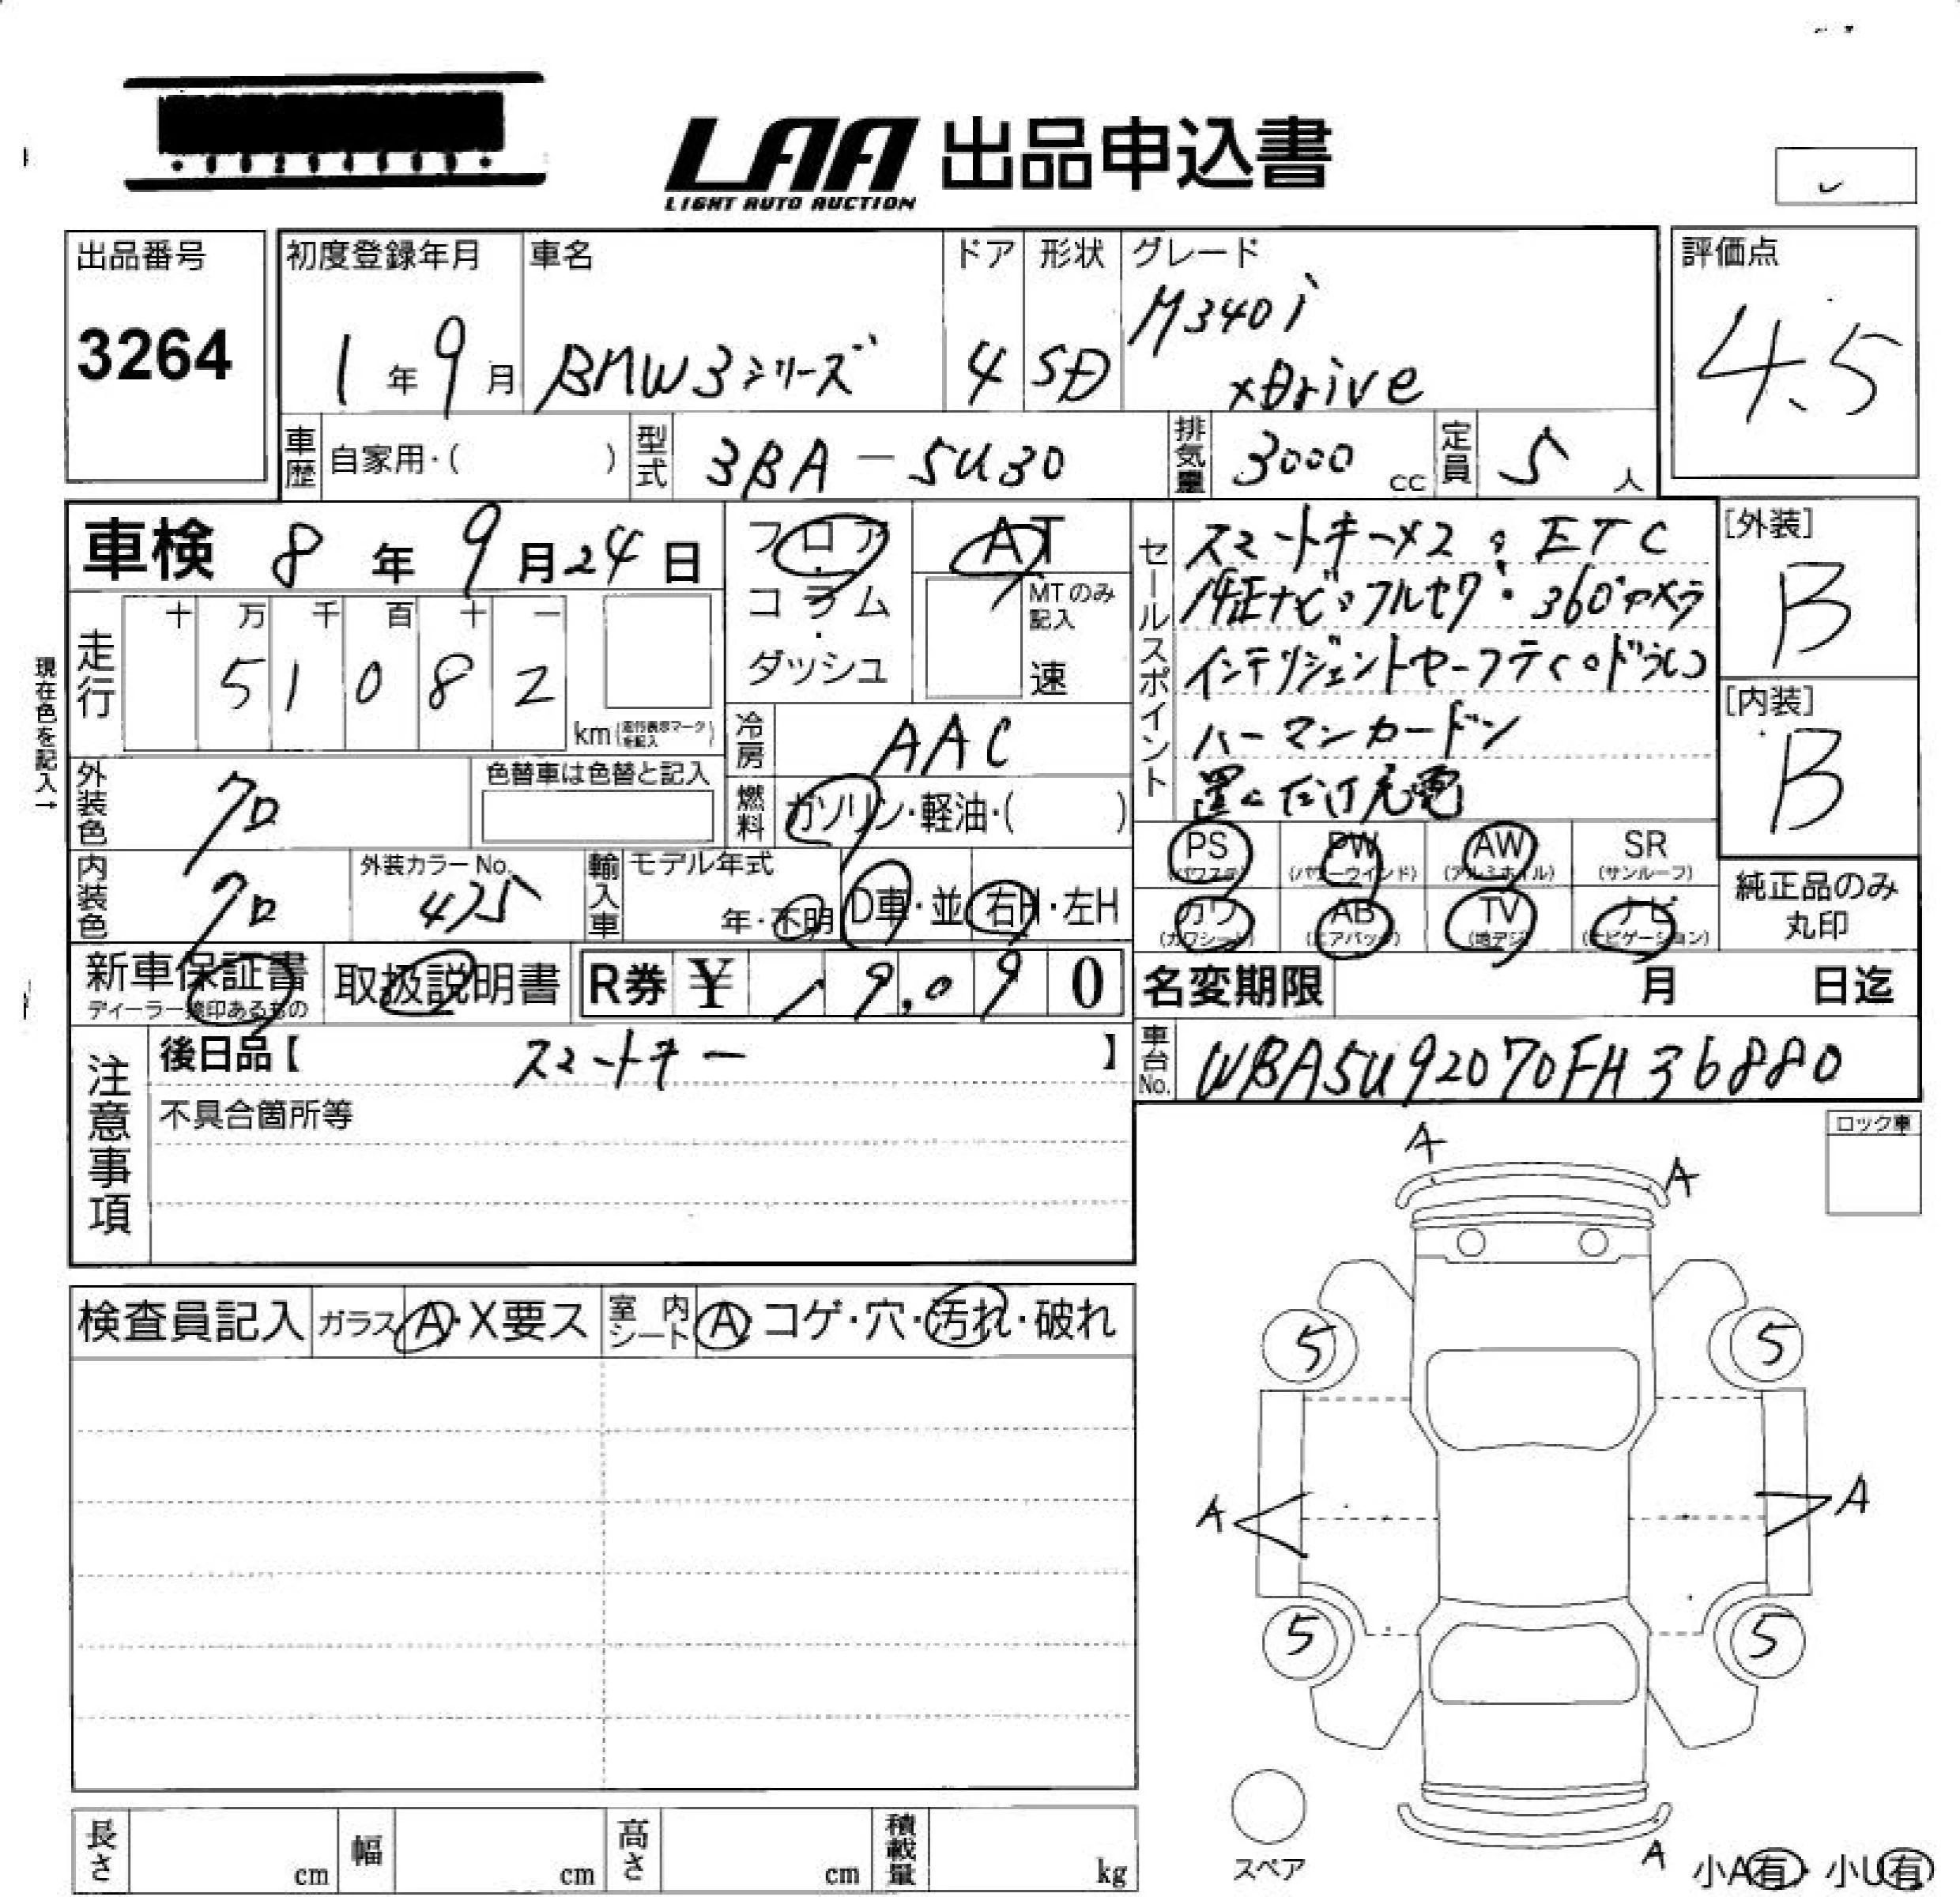 LAA 出品申込書
LIGHT AUTO AUCTION
出品番号
3264
初度登録年月
1年9月
車名
BMW3シリーズ
ドア
4
形状
SD
グレード
M340i
xDrive
評価点
4.5
車歴 自家用・( )
型式 3BA-5U30
排気量 3000 cc
定員 5 人
車検 8年9月24日
走行
十 万 千 百 十 一
5 1 0 8 2
km(走行表示マークを記入)
現在色を記入→
フロア
・
コラム
・
ダッシュ
AT
MTのみ記入
速
冷房 AAC
燃料 ガソリン・軽油・( )
セールスポイント
スマートキー×2。ETC
純正ナビ。フルセグ・360°カメラ
インテリジェントセーフティ。ドラレコ
ハーマンカードン
置くだけ充電
[外装]
B
[内装]
B
外装色 クロ
色替車は色替と記入
内装色 クロ
外装カラーNo.
475
輸入車
モデル年式
年・不明
D車・並 右H・左H
PS
(パワステ)
PW
(パワーウインド)
AW
(アルミホイル)
SR
(サンルーフ)
カワ
(カワシート)
AB
(エアバッグ)
TV
(地デジ)
ナビ
(ナビゲーション)
純正品のみ
丸印
新車保証書
ディーラー捺印あるもの
取扱説明書
R券 ¥ 19,090
名変期限 月 日迄
注意事項
後日品【 スマートキー 】
不具合箇所等
車台No. WBA5U92070FH36880
ロック車
検査員記入
ガラス A・X要ス
室内シート A・コゲ・穴・汚れ・破れ
A
A
5
5
A
A
5
5
スペア
A
小A有・小U有
長さ cm
幅 cm
高さ cm
積載量 kg